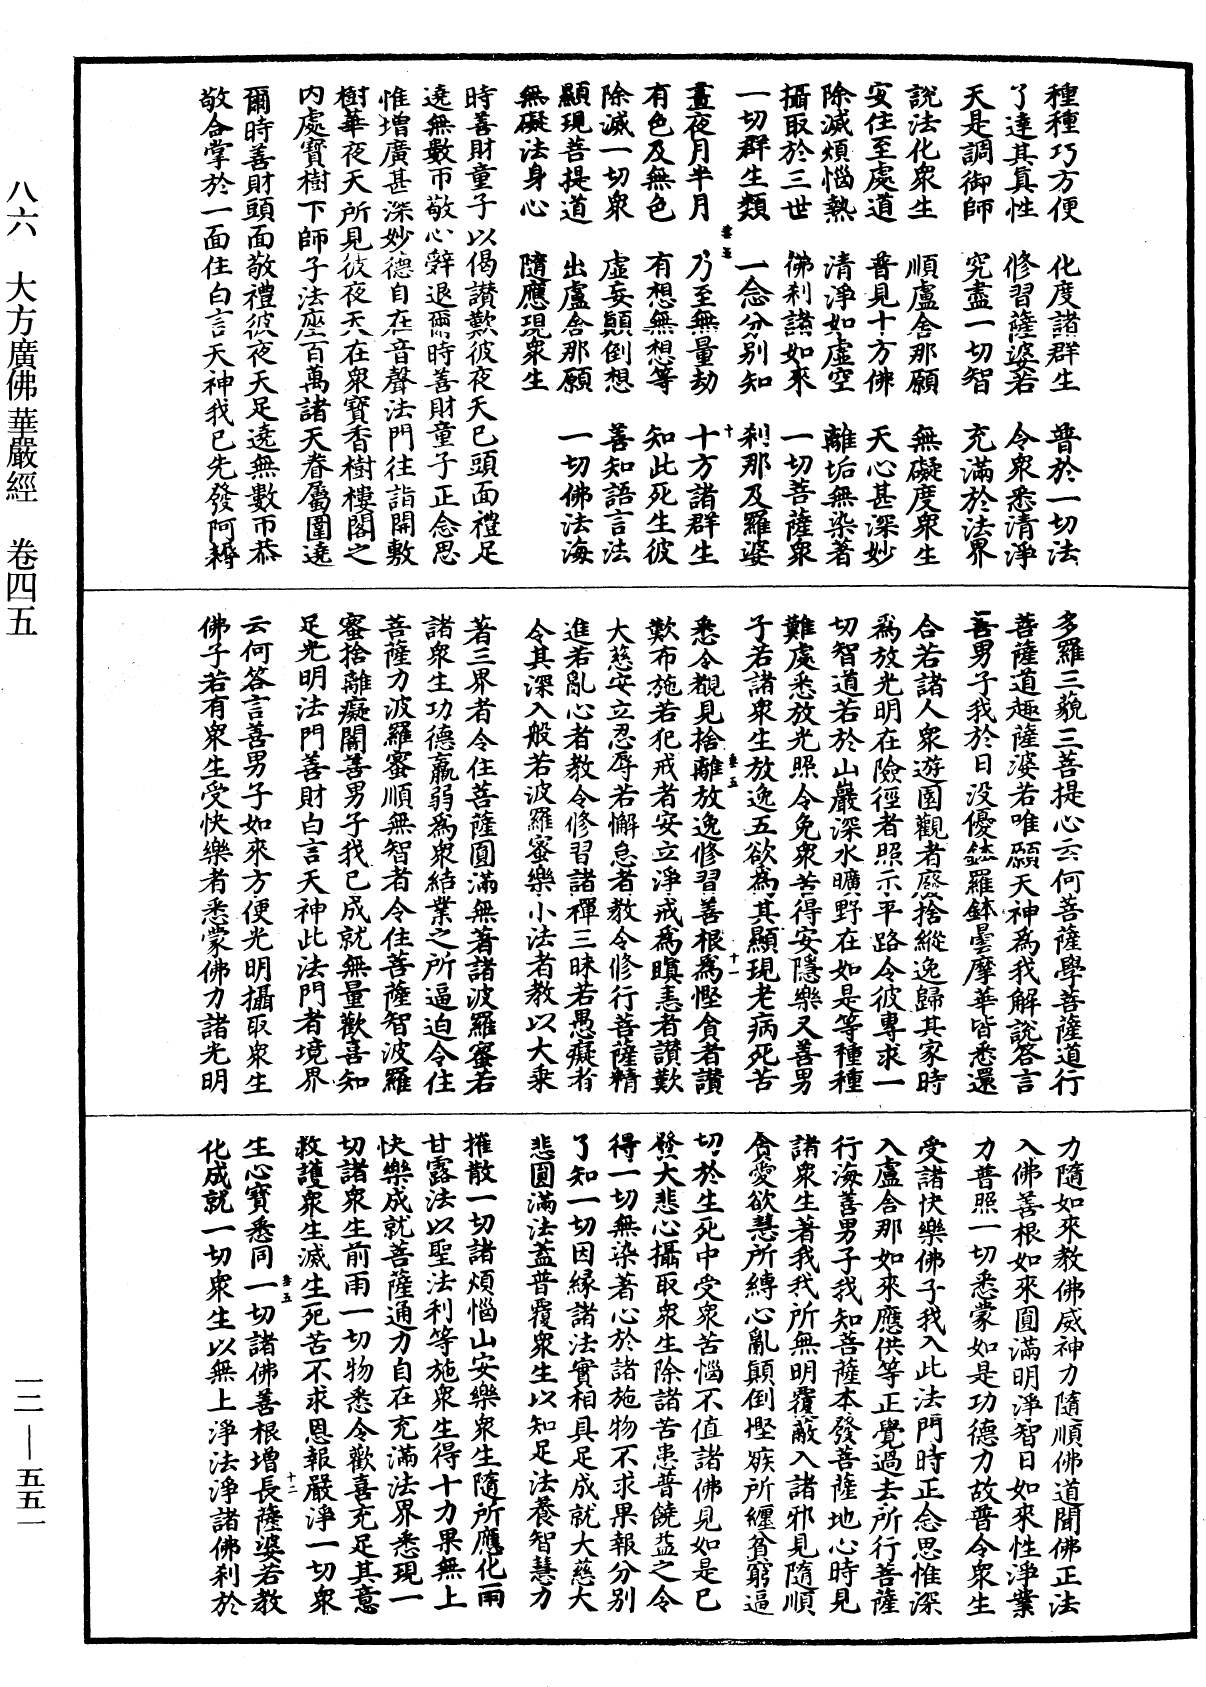 種種巧方便　化度諸群生　普於一切法
了達其真性　修習薩婆若　令衆悉清淨
天是調御師　究盡一切智　充滿於法界
說法化衆生　順盧舍那願　無礙度衆生
安住至處道　普見十方佛　天心甚深妙
除滅煩惱熱　清淨如虛空　離垢無染著
攝取於三世　佛刹諸如來　一切菩薩衆
一切群生類　一念分別知　刹那及羅婆
晝夜月半月　乃至無量劫　十方諸群生
有色及無色　有想無想等　知此死生彼
除滅一切衆　虛妄顛倒想　善知語言法
顯現菩提道　出盧舍那願　一切佛法海
無礙法身心　隨應現衆生
時善財童子以偈讚歎彼夜天已頭面禮足
遶無數帀敬心辭退爾時善財童子正念思
惟增廣甚深妙德自在音聲法門往詣開敷
樹華夜天所見彼夜天在衆寶香樹樓閣之
内處寶樹下師子法座百萬諸天眷屬圍遶
爾時善財頭面敬禮彼夜天足遶無數帀恭
敬合掌於一面住白言天神我已先發阿耨
多羅三藐三菩提心云何菩薩學菩薩道行
菩薩道趣薩婆若唯願天神為我解說答言
善男子我於日没優鉢羅鉢曇摩華皆悉還
合若諸人衆遊園觀者廢捨縱逸歸其家時
為放光明在險徑者照示平路令彼專求一
切智道若於山巖深水曠野在如是等種種
難處悉放光照令免衆苦得安隱樂又善男
子若諸衆生放逸五欲為其顯現老病死苦
悉令觀見捨離放逸修習善根為慳貪者讚
歎布施若犯戒者安立淨戒為瞋恚者讚歎
大慈安立忍辱若懈怠者教令修行菩薩精
進若亂心者教令修習諸禪三昧若愚癡者
令其深入般若波羅蜜樂小法者教以大乘
著三界者令住菩薩圓滿無著諸波羅蜜若
諸衆生功德羸弱為衆結業之所逼迫令住
菩薩力波羅蜜順無智者令住菩薩智波羅
蜜捨離癡闇善男子我已成就無量歡喜知
足光明法門善財白言天神此法門者境界
云何答言善男子如來方便光明攝取衆生
佛子若有衆生受快樂者悉蒙佛力諸光明
力隨如來教佛威神力隨順佛道聞佛正法
入佛善根如來圓滿明淨智日如來性淨業
力普照一切悉蒙如是功德力故普令衆生
受諸快樂佛子我入此法門時正念思惟深
入盧舍那如來應供等正覺過去所行菩薩
行海善男子我知菩薩本發菩薩地心時見
諸衆生著我我所無明覆蔽入諸邪見隨順
貪愛欲慧所縛心亂顛倒慳嫉所纏貧窮逼
切於生死中受衆苦惱不值諸佛見如是已
發大悲心攝取衆生除諸苦患普饒益之令
得一切無染著心於諸施物不求果報分別
了知一切因緣諸法實相具足成就大慈大
悲圓滿法蓋普覆衆生以知足法養智慧力
摧散一切諸煩惱山安樂衆生隨所應化雨
甘露法以聖法利等施衆生得十力果無上
快樂成就菩薩通力自在充滿法界悉現一
切諸衆生前雨一切物悉令歡喜充足其意
救護衆生滅生死苦不求恩報嚴淨一切衆
生心寶悉同一切諸佛善根增長薩婆若教
化成就一切衆生以無上淨法淨諸佛刹於
垂五
十
垂五
十一
垂五
十二
八六　大方廣佛華嚴經　卷四五
一二—五五一